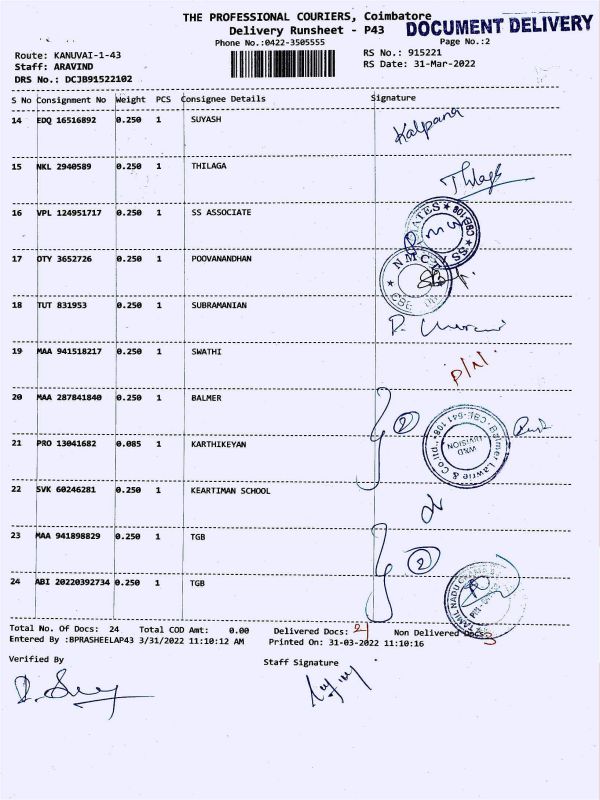 THE PROFESSIONAL COURIERS, Coimbatore
DOCUMENT DELIVERY
Delivery Runsheet - P43
Phone No.:0422-3505555
Page No.:2
Route: KANUVAI-1-43
RS No.: 915221
Staff: ARAVIND
RS Date: 31-Mar-2022
DRS No.: DCJB91522102
S No Consignment No Weight PCS Consignee Details Signature
14 EDQ 16516892 0.250 1 SUYASH Kalpana
15 NKL 2940589 0.250 1 THILAGA Thilaga
16 VPL 124951717 0.250 1 SS ASSOCIATE
17 OTY 3652726 0.250 1 POOVANANDHAN
18 TUT 831953 0.250 1 SUBRAMANIAN
19 MAA 941518217 0.250 1 SWATHI
20 MAA 287841840 0.250 1 BALMER 2
21 PRO 13041682 0.085 1 KARTHIKEYAN
Balmer Lawrie & Co.ltd
CBE-641 108
22 SVK 60246281 0.250 1 KEARTIMAN SCHOOL
23 MAA 941898829 0.250 1 TGB 2
24 ABI 20220392734 0.250 1 TGB
TAMIL NADU
Total No. Of Docs: 24 Total COD Amt: 0.00 Delivered Docs: 21 Non Delivered Docs: 3
Entered By :BPRASHEELAP43 3/31/2022 11:10:12 AM Printed On: 31-03-2022 11:10:16
Verified By
Staff Signature